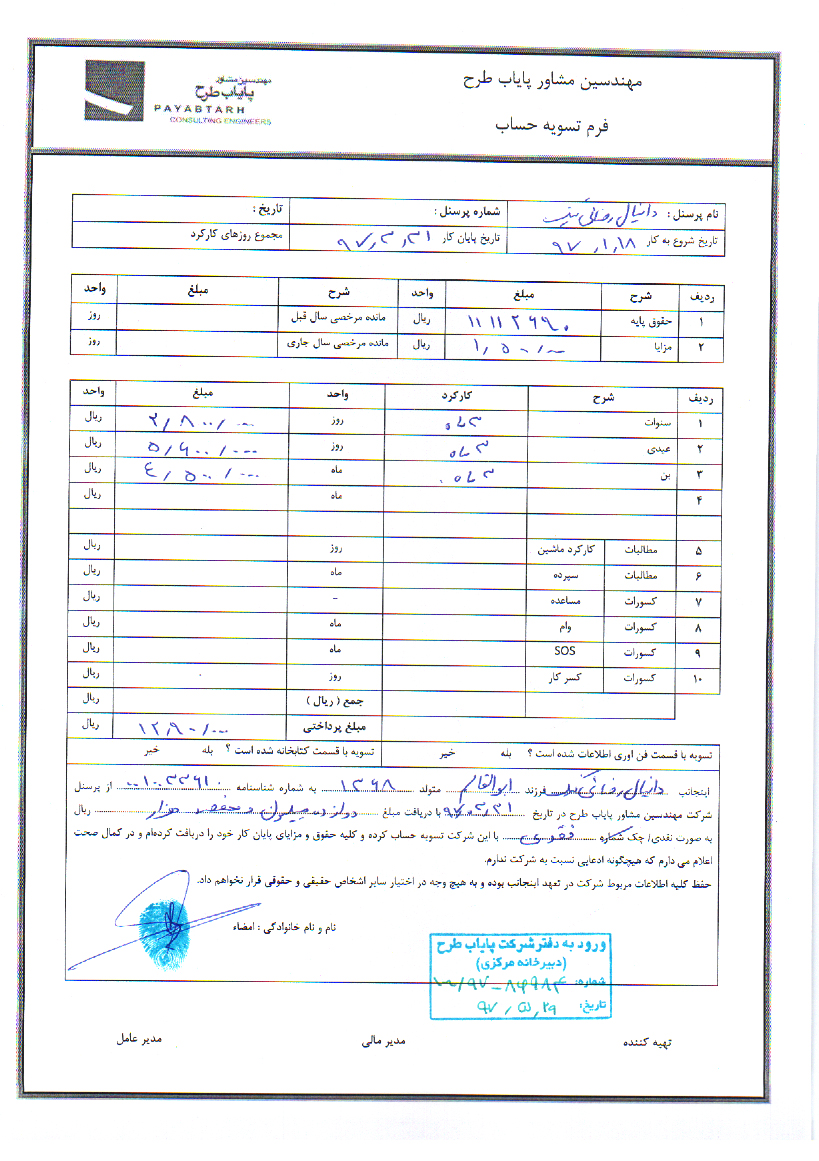 مهندسین مشاور پایاب طرح
فرم تسویه حساب
مهندسین مشاور
پایاب طرح
PAYABTARH
CONSULTING ENGINEERS
نام پرسنل : دانیال شماره پرسنل : تاریخ :
تاریخ شروع به کار ۹۷,۱,۱۸ تاریخ پایان کار ۹۷,۳,۳۱ مجموع روزهای کارکرد
ردیف شرح مبلغ واحد شرح مبلغ واحد
۱ حقوق پایه ۱۱۱۱۲۶۹۰ ریال مانده مرخصی سال قبل روز
۲ مزایا ریال مانده مرخصی سال جاری روز
ردیف شرح کارکرد واحد مبلغ واحد
۱ سنوات ۳ماه روز ۲,۸۰۰,۰۰۰ ریال
۲ عیدی ۳ماه روز ۵,۶۰۰,۰۰۰ ریال
۳ بن ۳ماه ماه ۴,۵۰۰,۰۰۰ ریال
۴ ماه ریال
۵ مطالبات کارکرد ماشین روز ریال
۶ مطالبات سپرده ماه ریال
۷ کسورات مساعده - ریال
۸ کسورات وام ماه ریال
۹ کسورات SOS ماه ریال
۱۰ کسورات کسر کار روز ریال
جمع ( ریال ) ریال
مبلغ پرداختی ۱۲,۹۰۰,۰۰۰ ریال
تسویه با قسمت فن اوری اطلاعات شده است ؟ بله خیر تسویه با قسمت کتابخانه شده است ؟ بله خیر
اینجانب دانیال فرزند ابوالقاسم متولد ۱۳۶۸ به شماره شناسنامه از پرسنل
شرکت مهندسین مشاور پایاب طرح در تاریخ ۹۷,۳,۳۱ با دریافت مبلغ دوازده میلیون و نهصد هزار ریال
به صورت نقدی/ چک شماره با این شرکت تسویه حساب کرده و کلیه حقوق و مزایای پایان کار خود را دریافت کرده‌ام و در کمال صحت
اعلام می دارم که هیچگونه ادعایی نسبت به شرکت ندارم.
حفظ کلیه اطلاعات مربوط شرکت در تعهد اینجانب بوده و به هیچ وجه در اختیار سایر اشخاص حقیقی و حقوقی قرار نخواهم داد.
نام و نام خانوادگی : امضاء
ورود به دفتر شرکت پایاب طرح
(دبیرخانه مرکزی)
شماره:
تاریخ: ۹۷,۵,۲۹
تهیه کننده مدیر مالی مدیر عامل